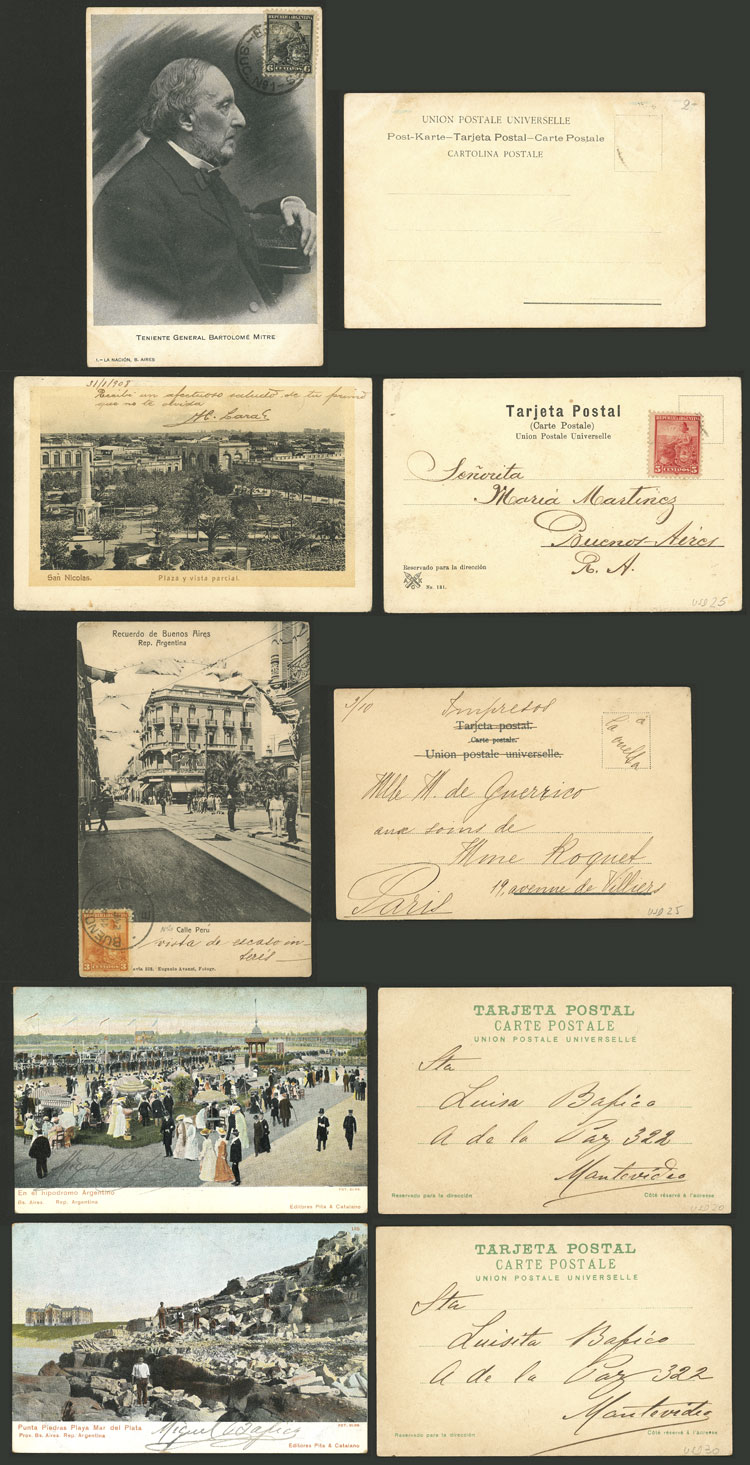 REPUBLICA ARGENTINA
6 CENTAVOS 6
SUC. Nº1
TENIENTE GENERAL BARTOLOMÉ MITRE
1.-LA NACIÓN, B. AIRES
2-
UNION POSTALE UNIVERSELLE
Post-Karte-Tarjeta Postal-Carte Postale
CARTOLINA POSTALE
31/1/908
Recibe un afectuoso saludo de tu primo
que no te olvida
San Nicolas.
Plaza y vista parcial.
Tarjeta Postal
(Carte Postale)
Union Postale Universelle
REPUBLICA ARGENTINA
5 CENTAVOS 5
Señorita
Maria Martinez
Buenos-Aires
R. A.
Reservado para la dirección
No. 131.
USD 25
Recuerdo de Buenos Aires
Rep. Argentina
BUENOS
3 CENTAVOS 3
Calle Perú
vista de escaso in-
terés
Eugenio Avanzi, Fotogr.
9/10
Impresos
Tarjeta postal.
Carte postale.
Union postale universelle.
à
la vuelta
Mlle M. de Guerrico
aux soins de
Mme Roquet
19, avenue de Villiers
Paris
USD 25
En el hipodromo Argentino
Bs. Aires Rep. Argentina
Editores Pita & Catalano
TARJETA POSTAL
CARTE POSTALE
UNION POSTALE UNIVERSELLE
Sta
Luisa Bafico
A de la Paz 322
Montevideo
Reservado para la dirección
Côté réservé à l'adresse
USD 20
Punta Piedras Playa Mar del Plata
Prov. Bs. Aires Rep. Argentina
Miguel A Bafico
Editores Pita & Catalano
TARJETA POSTAL
CARTE POSTALE
UNION POSTALE UNIVERSELLE
Sta
Luisita Bafico
A de la Paz 322
Montevideo
Reservado para la dirección
Côté réservé à l'adresse
USD 30